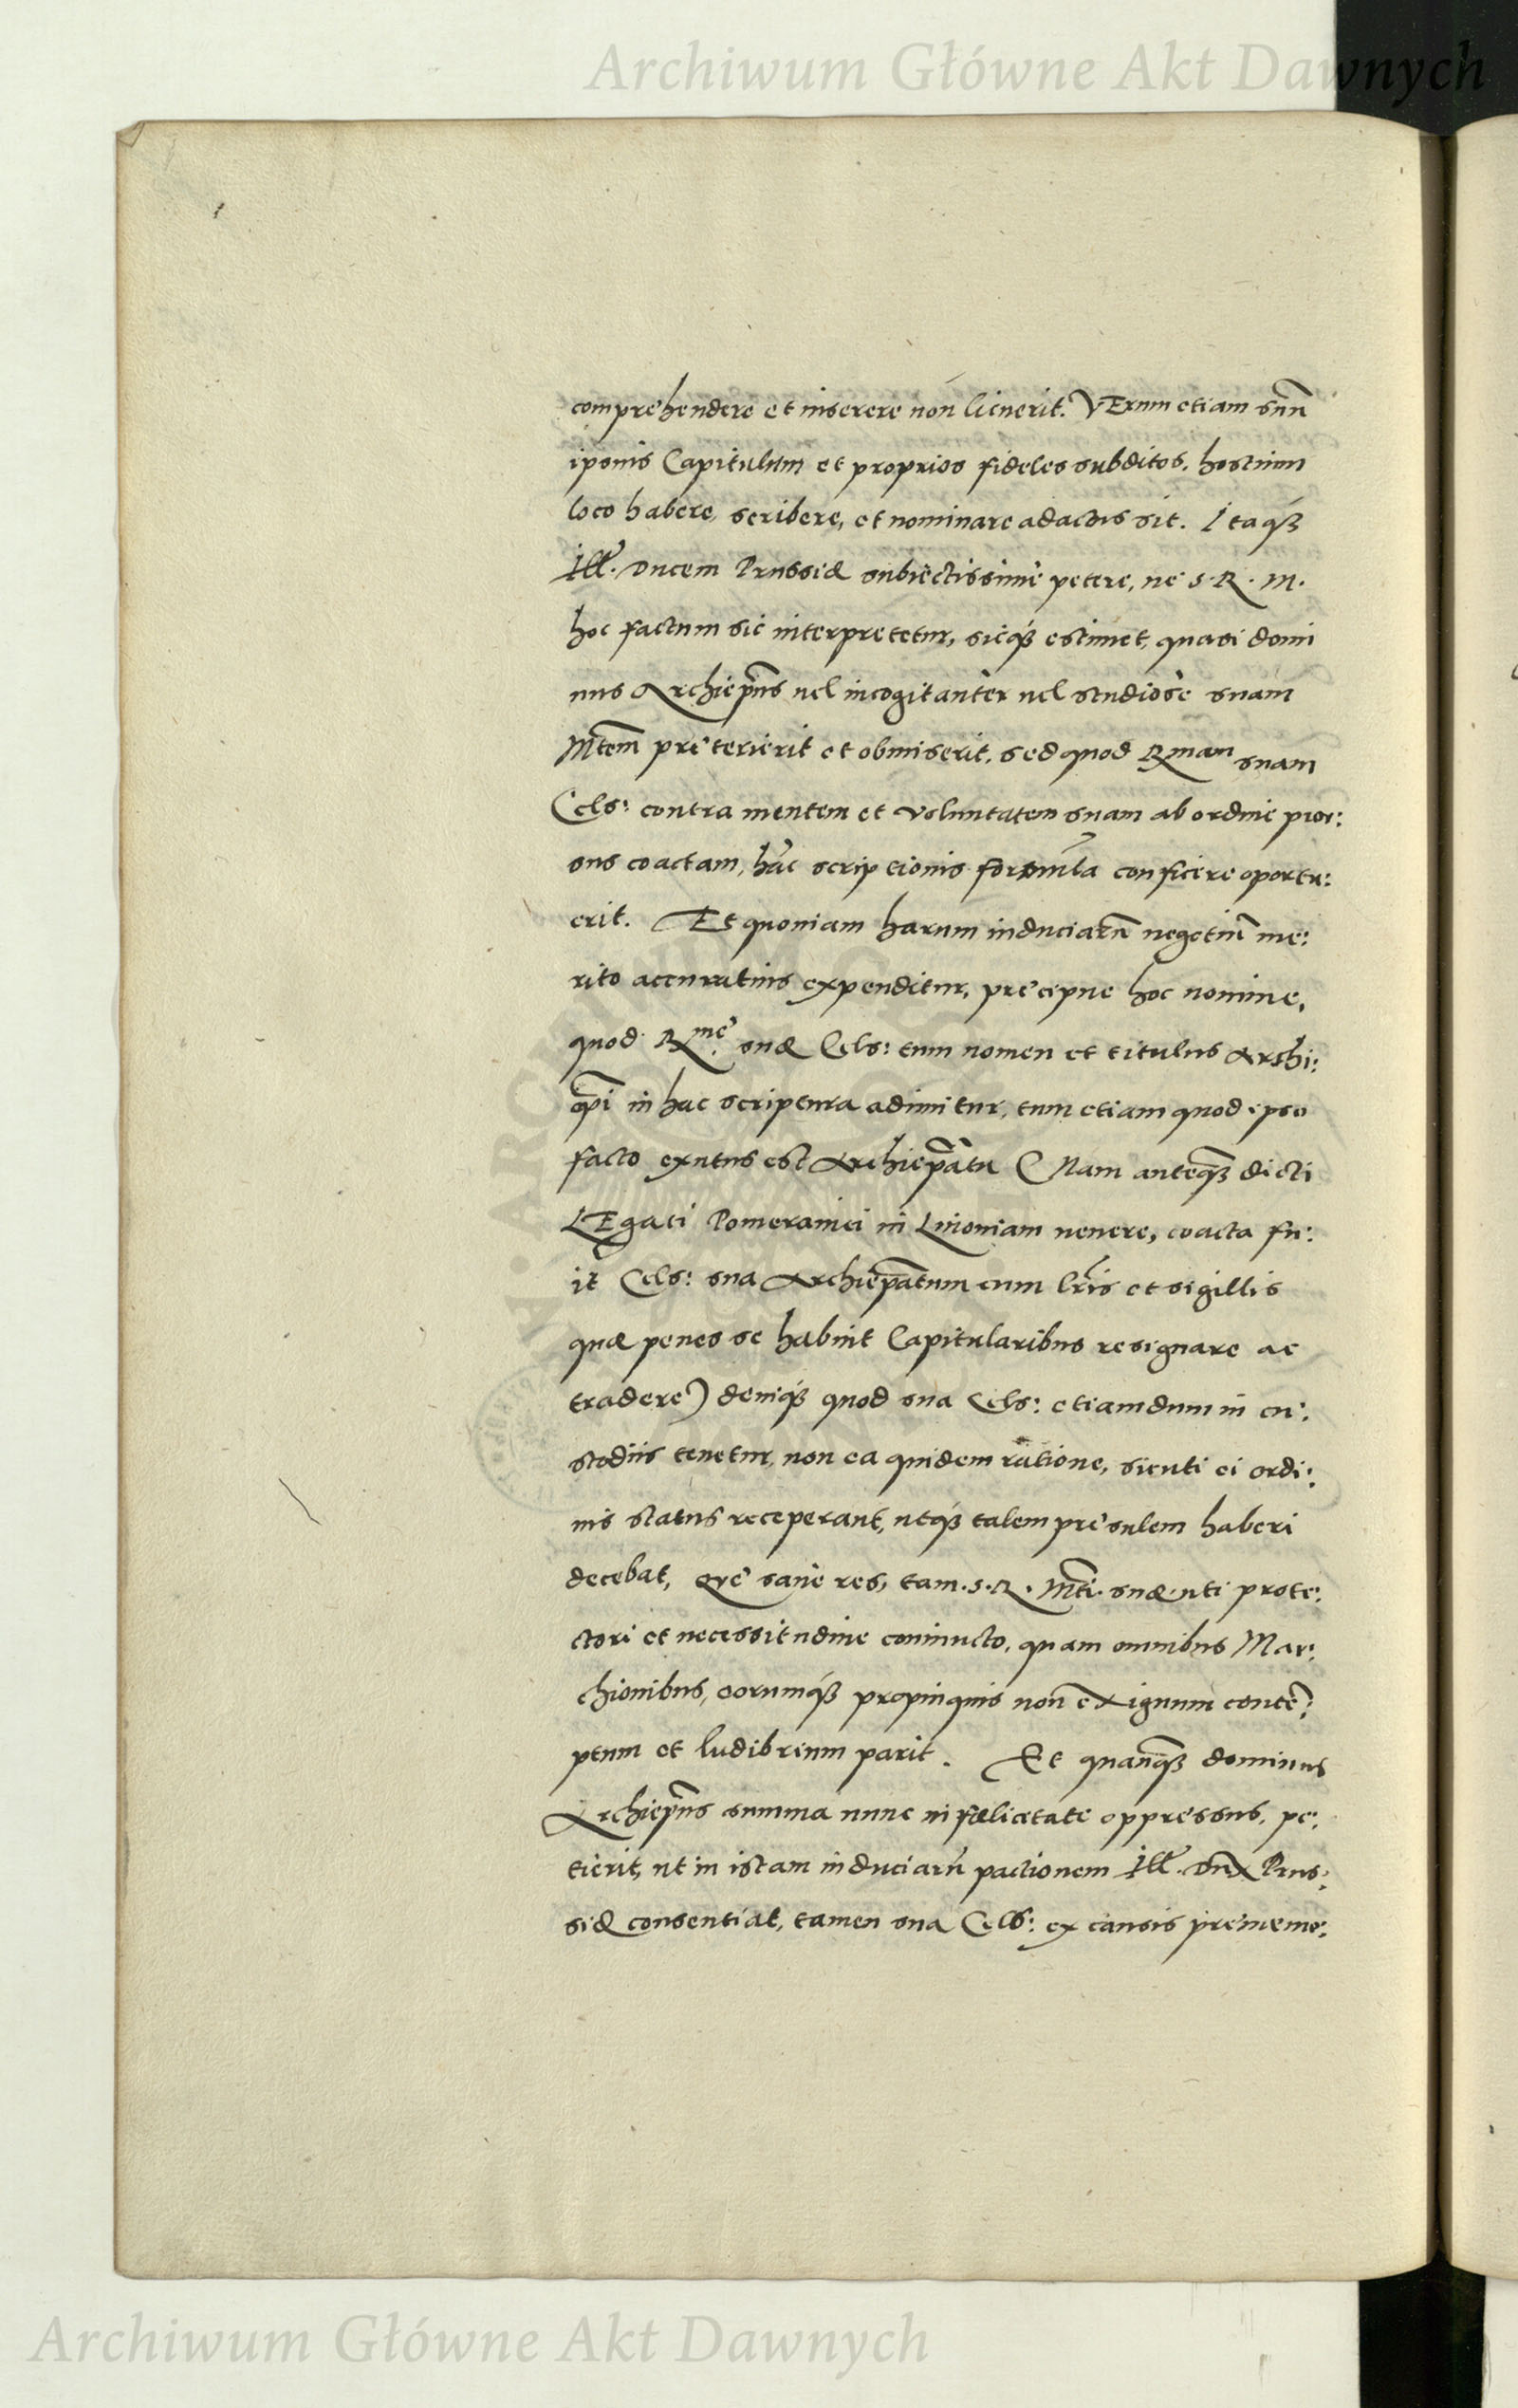 Archiwum Główne Akt Dawnych
comprehendere et inserere non licuerit. VErum etiam suũ
ipsius Capitulum et proprios fideles subditos, hostium
loco habere, scribere, et nominare adactus sit. Itaq́ꝫ
Ill. Ducem Prussiæ subiectissimè petere, ne S. R. M.
hoc factum sic interpretetur, sicq́ꝫ estimet, quasi domi
nus Archiep̃us uel incogitantèr uel studiosè suam
Mtem̃ preterierit et obmiserit, sed quod Rmam suam
Cels: contra mentem et voluntatem suam ab ordine pror:
sus coactam, hãc scriptionis formula conficere oportu:
erit. Et quoniam harum induciarũ negotiũ me:
rito accuratius expenditur, precipue hoc nomine,
quod Rme. suæ Cels: tum nomen et titulus Archi:
ep̃i in hac scriptura adimitur, tum etiam quod ipso
facto exutus est Archiep̃atu (Nam anteq̃ꝫ dicti
LEgati Pomeranici in Liuoniam uenere, coacta fu:
it Cels: sua Archiep̃atum cum lr̃is et sigillis
quæ penes se habuit Capitularibus resignare ac
tradere) deniq́ꝫ quod sua Cels: etiamdum in cu:
stodiis tenetur, non ea quidem ratione, sicuti ei ordi:
nis status receperant, utq́ꝫ talem presulem haberi
decebat, Que sanè res, tam. S. R. Mti. suæ uti prote:
ctori et necessitudine coniuncto, quam omnibus Mar:
chionibus, eorumq́ꝫ propinquis non exiguum contẽ:
ptum et ludibrium parit. Et quanq̃ꝫ dominus
Archiep̃us summa nunc infœlicitate oppressus, pe:
tierit, ut in istam induciarũ pactionem Ill. Dux Prus:
siæ consentiat, tamen sua Cels: ex causis prememo:
Archiwum Główne Akt Dawnych